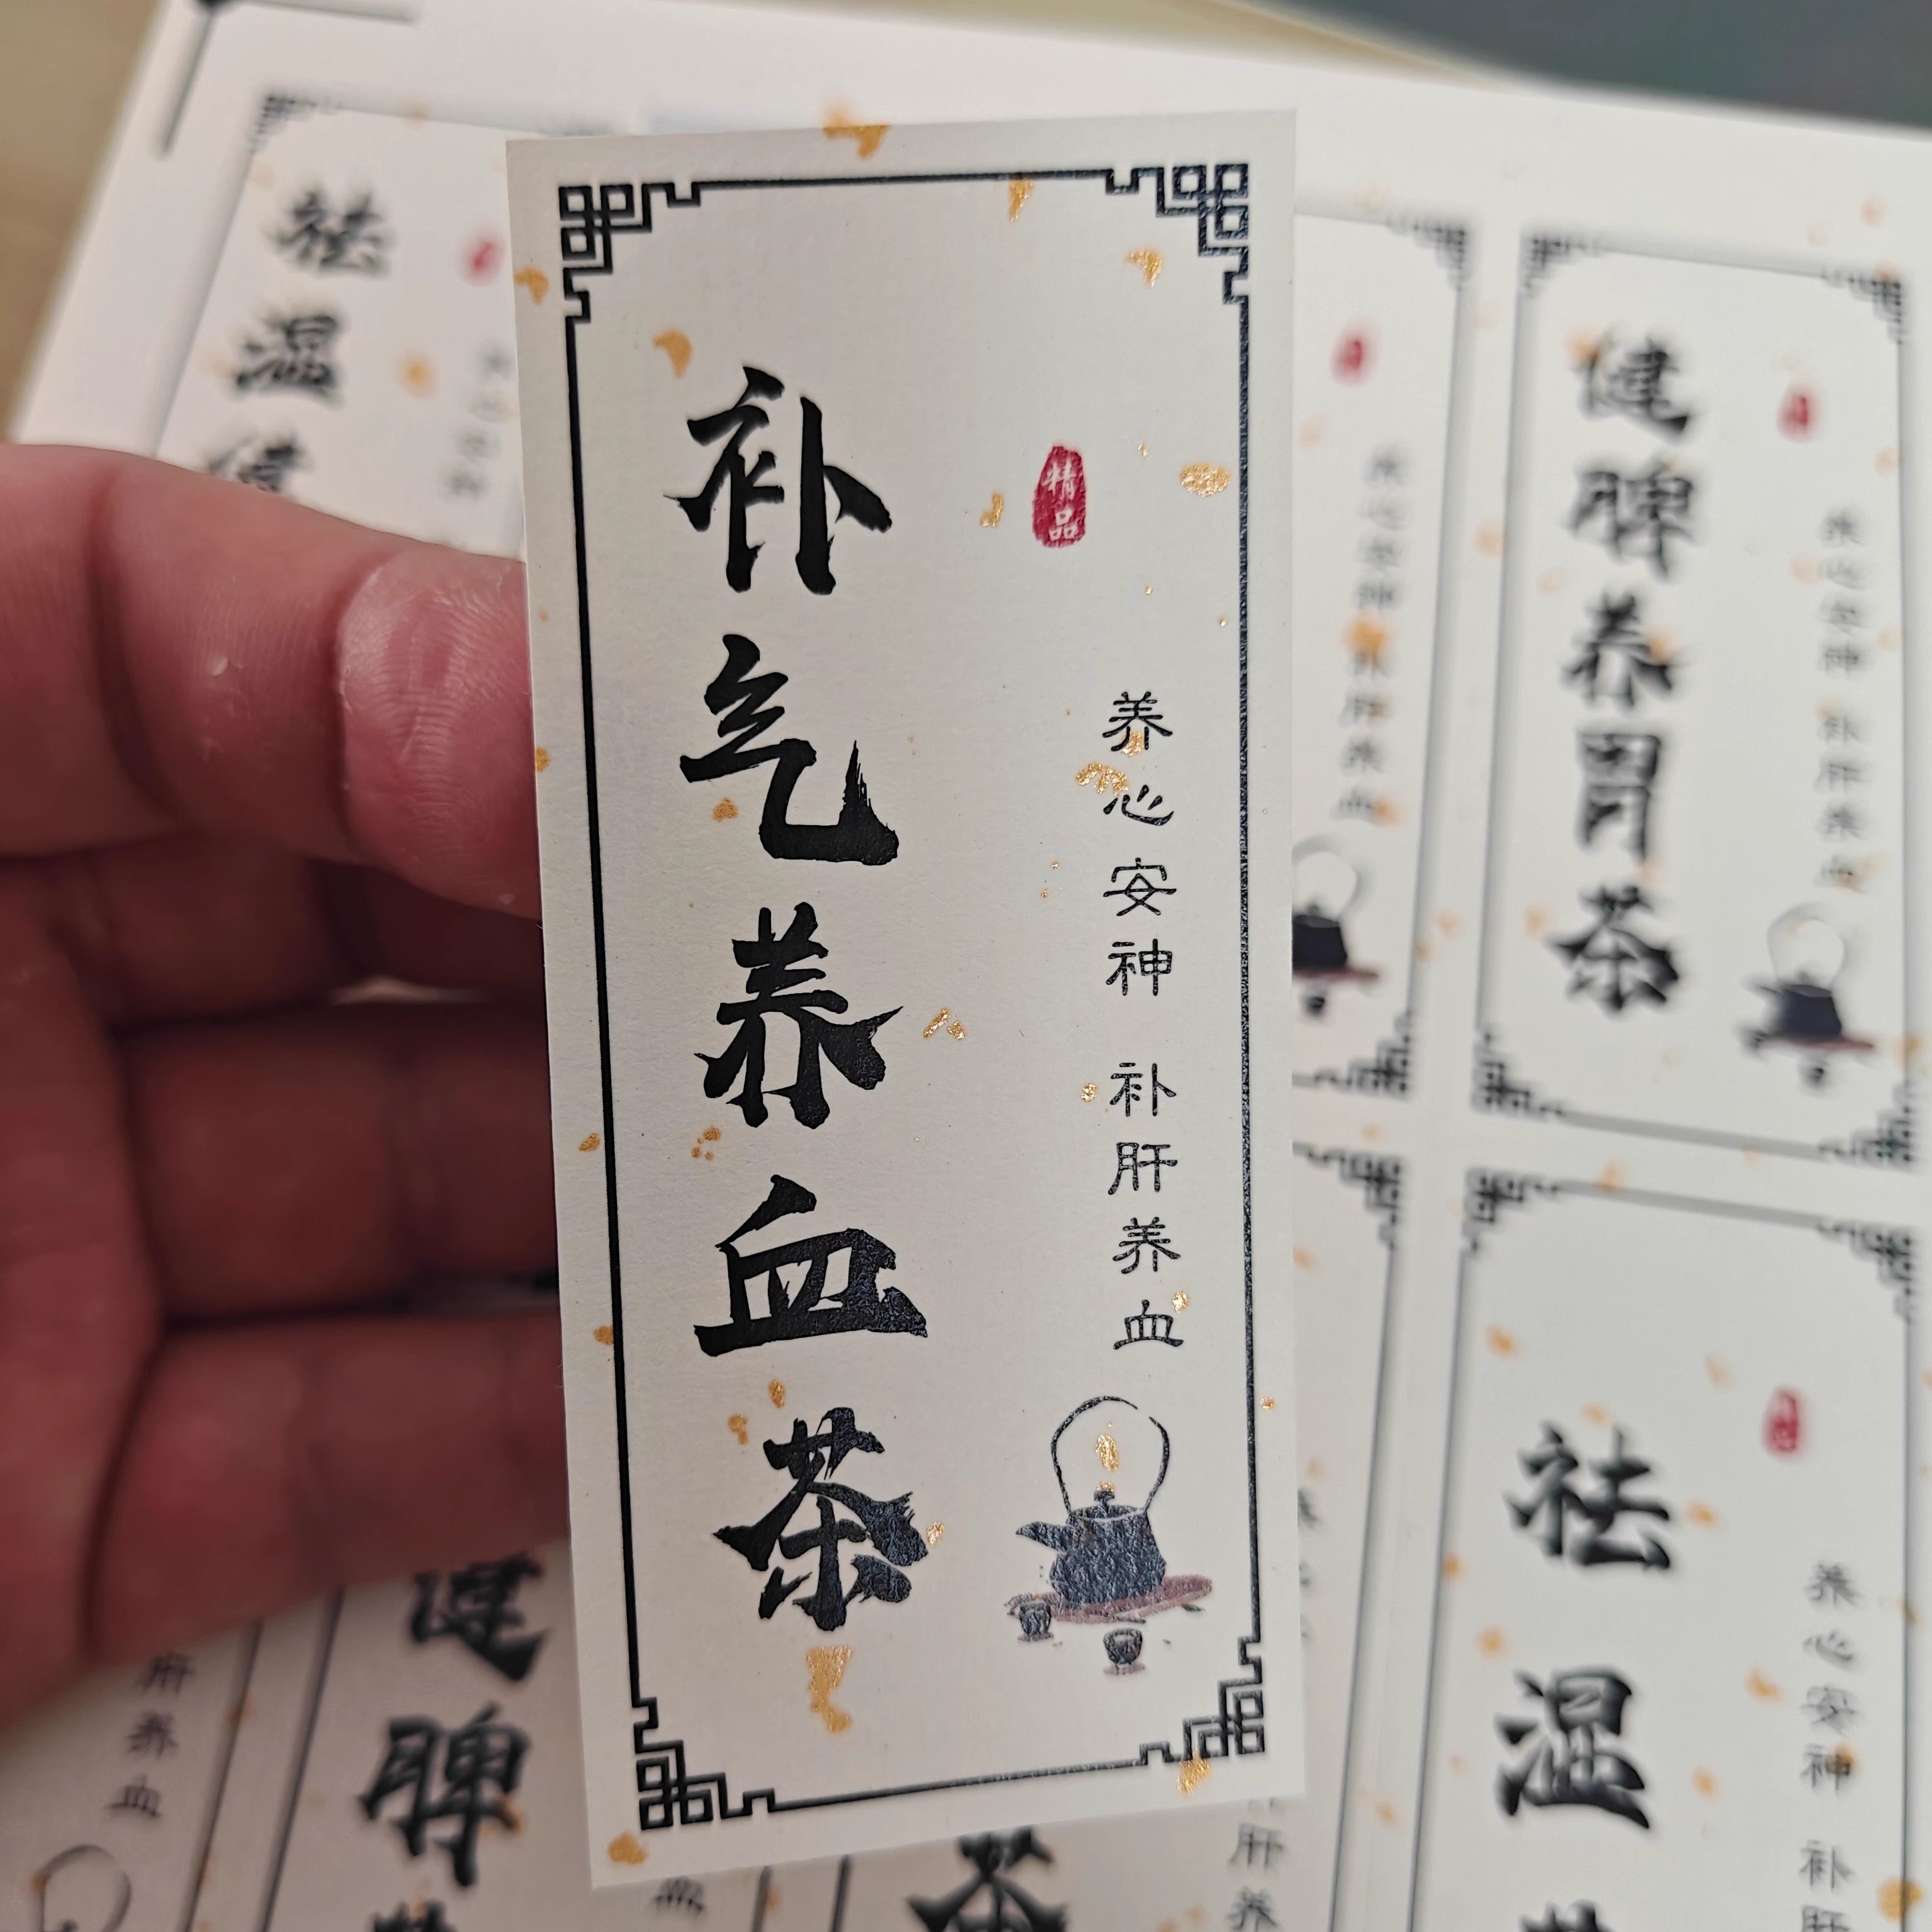 补气养血茶
精品
养心安神 补肝养血
祛湿健
健脾养胃茶
养心安神 补肝养血
祛湿
养心安神 补肝
健脾
肝养血
茶
肝养